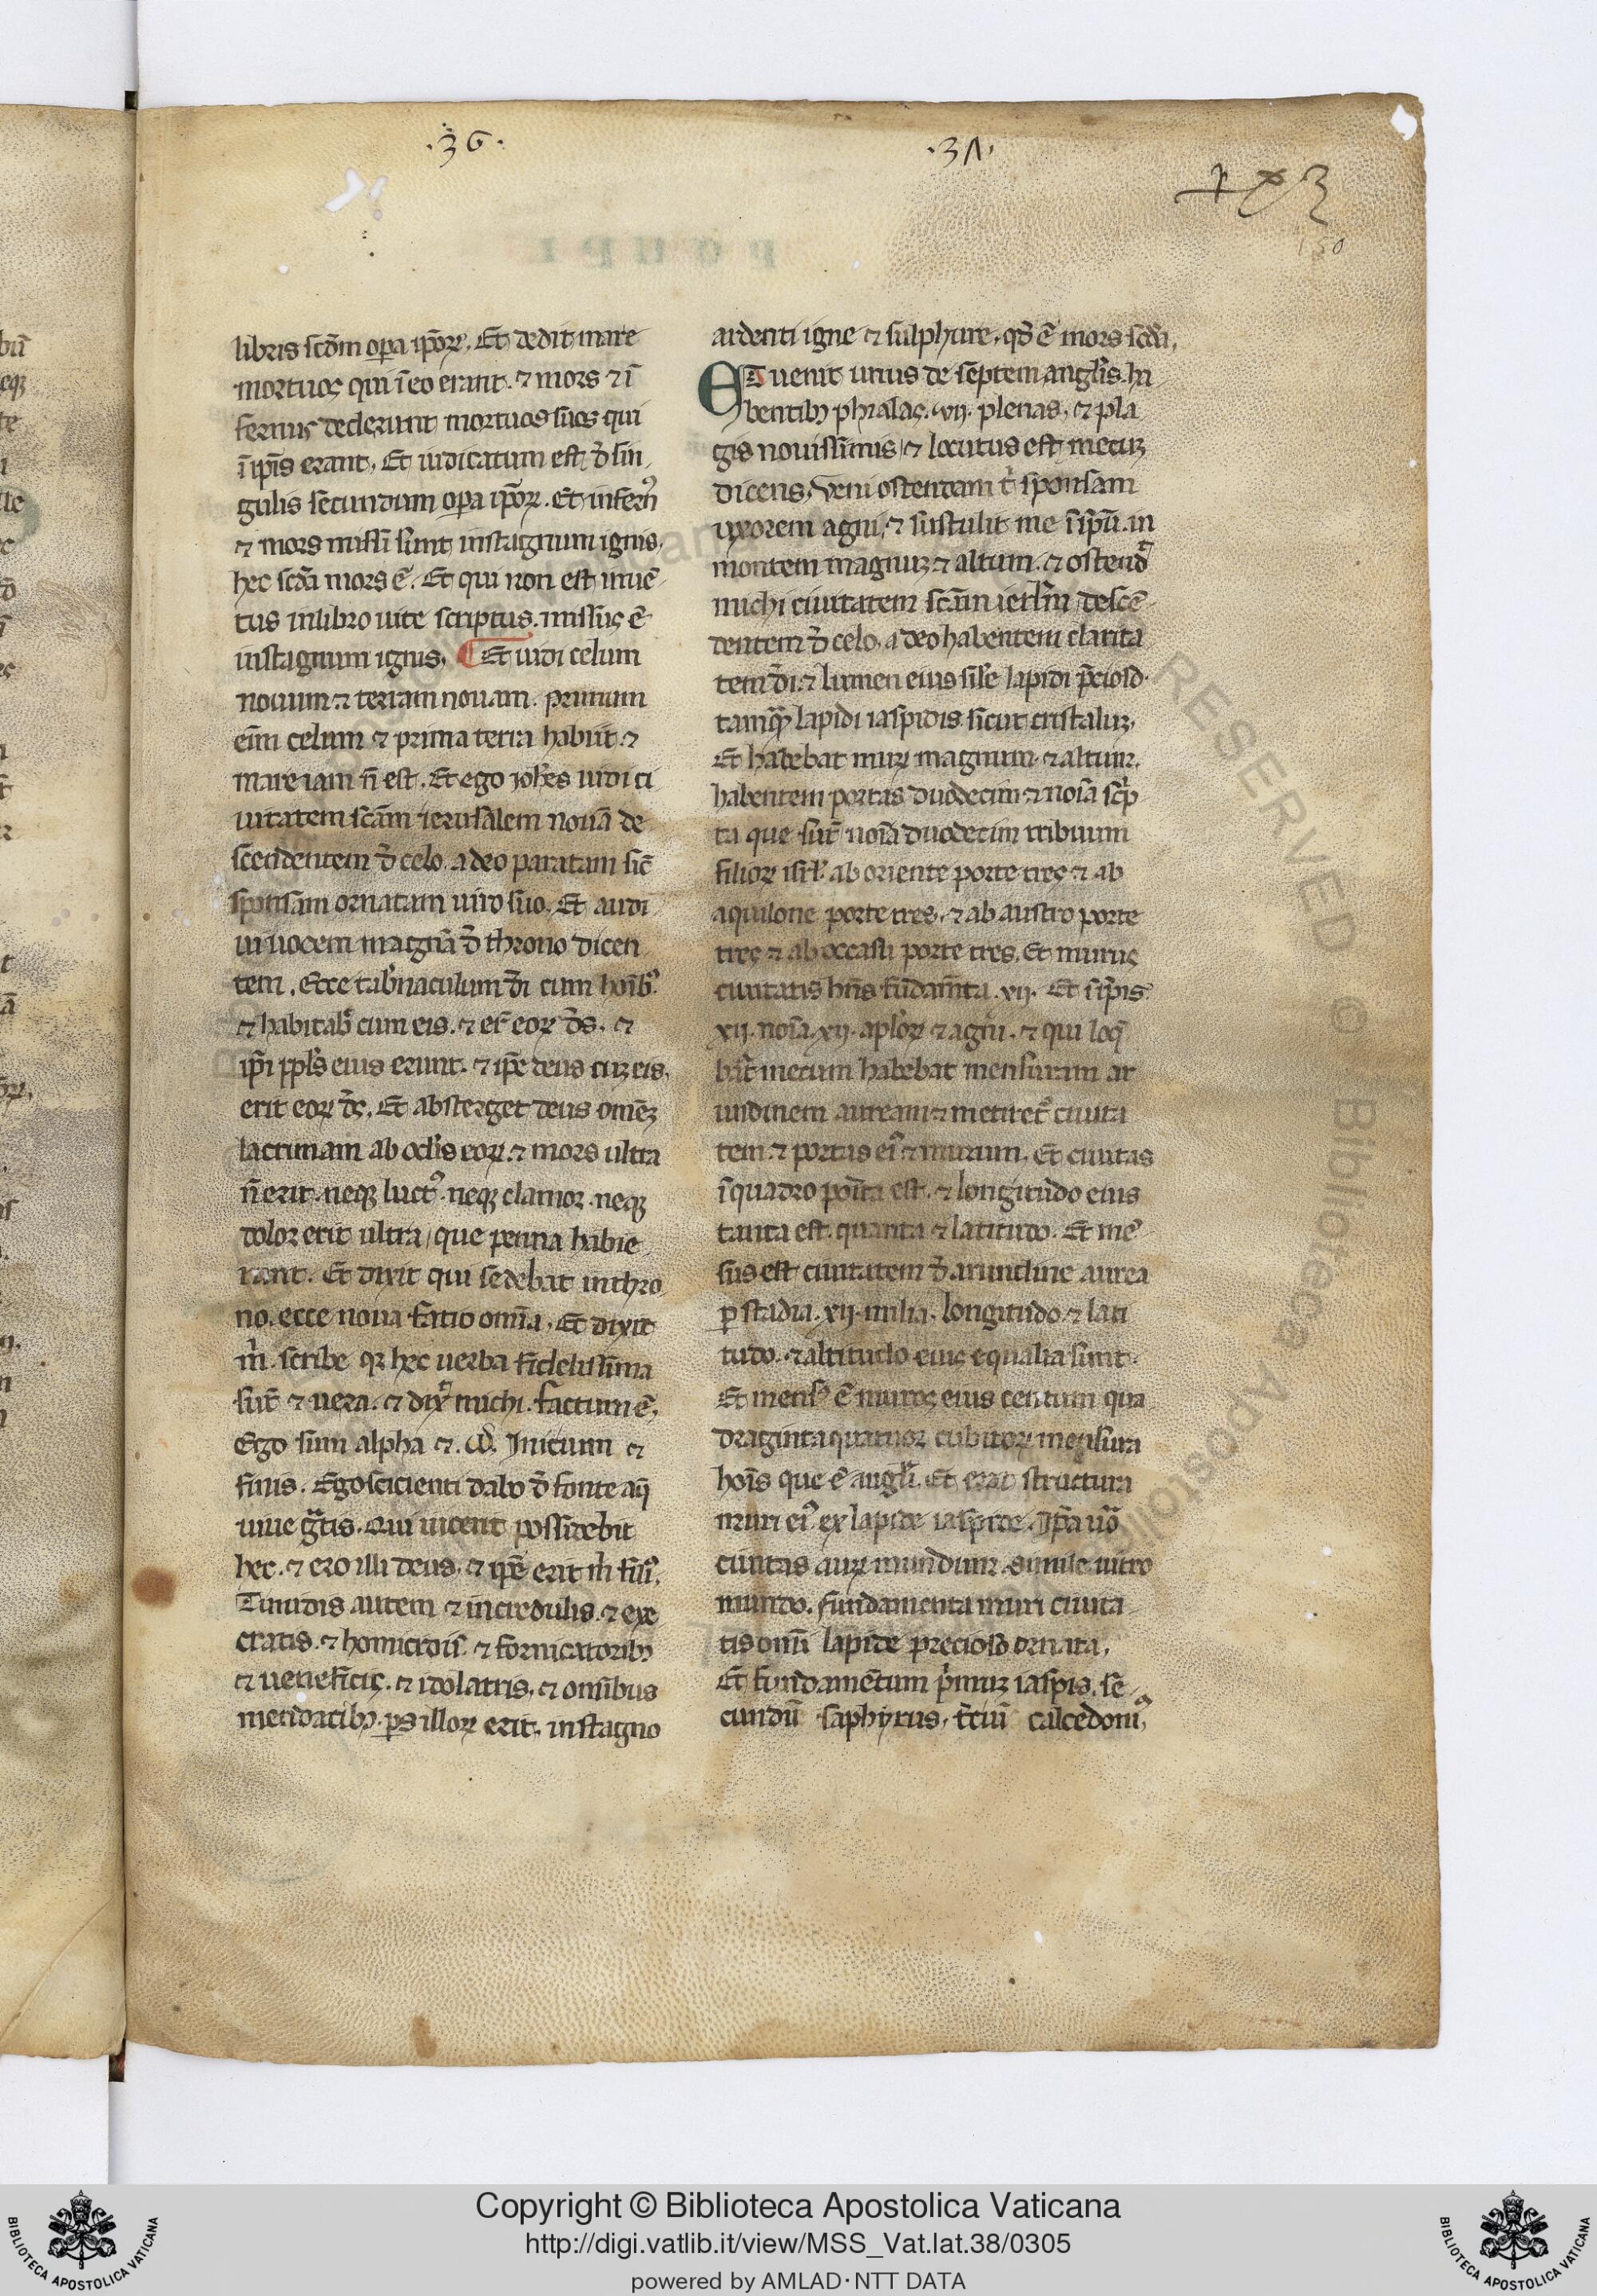 .36.
.37.
150
libris scd̄m oꝑa ip̄oꝝ. Et dedit mare
mortuos qui ī eo erant. ⁊ mors ⁊ ī
fernus dederunt mortuos suos qui
ī ip̄is erant. Et iudicatum est d̄ sin
gulis secundum oꝑa ip̄oꝝ. Et infern᷒
⁊ mors missi sunt instagnum ignis.
hec scd̄a mors ē. Et qui non est inuē
tus inlibro uite scriptus. missus ē
instagnum ignis. Et uidi celum
nouum ⁊ terram nouam. primum
eīm celum ⁊ prima terra habiit ⁊
mare iam ñ est. Et ego ioh̄es uidi ci
uitatem sc̄am ierusalem nouā de
scendentem d̄ celo. a deo paratam sic̄
sponsam ornatam uiro suo. Et audi
ui uocem magnā d̄ throno dicen
tem. Ecce tab̄naculum d̄i cum hoīb᷒
⁊ habitab̄ cum eis. ⁊ er̄ eoꝝ d̄s. ⁊
ip̄i ppl̄s eius erunt. ⁊ ip̄e deus cuꝫ eis.
erit eoꝝ d̄s. Et absterget deus omēꝫ
lacrimam ab ocl̄is eoꝝ. ⁊ mors ultra
ñ erit. neqꝫ luct᷒. neqꝫ clamor. neqꝫ
dolor erit ultra, que prima habie
rant. Et dixit qui sedebat inthro
no. ecce noua facio om̄ia. Et dixit
m̄. scribe qꝛ hec uerba fidelissima
sūt ⁊ uera. ⁊ dix̄ michi. factum ē.
Ego sum alpha ⁊. ω. Inicium ⁊
finis. Ego scicienti dabo d̄ fonte aq̄
uiue gr̄tis. Qui uicerit possidebit
hec. ⁊ ero illi deus. ⁊ ip̄e erit m̄ fili᷒.
Timidis autem ⁊ incredulis. ⁊ exe
cratis. ⁊ homicidis. ⁊ fornicatoribꝫ
⁊ ueneficis. ⁊ idolatris. ⁊ omībus
mendacibꝫ. ꝑs illoꝝ erit. instagno
ardenti igne ⁊ sulphure. qd̄ ē mors scd̄a.
ET uenit unus de septem angl̄is. ha
bentibꝫ phialas. vii. plenas. ⁊ pla
gis nouissimis ⁊ locutus est mecuꝫ
dicens. Veni ostendam t̄ sponsam
uxorem agni. ⁊ sustulit me ī sp̄u. in
montem magnuꝫ ⁊ altum. ⁊ ostend̄
michi ciuitatem sc̄am ierl̄m descē
dentem d̄ celo. a deo habentem clarita
tem d̄i. ⁊ lumen eius sil̄e lapidi p̄cioso
tamqꝫ lapidi iaspidis. sicut cristaluꝫ.
Et habebat muꝝ magnum ⁊ altum.
habentem portas duodecim ⁊ noīa sc̄p
ta que sūt noīa duodecim tribuum
filioꝝ isrl̄. ab oriente porte tres ⁊ ab
aquilone porte tres. ⁊ ab austro porte
tres ⁊ ab occasu porte tres. Et murus
ciuitatis hn̄s fūdam̄ta. xii. Et ī ip̄is
xii. noīa. xii. apl̄oꝝ ⁊ agni. ⁊ qui loq̄
bat̄ mecum habebat mensuram ar
undinem auream ⁊ metiret᷒ ciuita
tem ⁊ portas ei᷒ ⁊ murum. Et ciuitas
ī quadro poīta est. ⁊ longitudo eius
tanta est. quanta ⁊ latitudo. Et mē
sus est ciuitatem d̄ arundine aurea
ꝑ stadia. xii. milia. longitudo ⁊ lati
tudo. ⁊ altitudo eius equalia sunt.
Et mens᷒ ē muros eius centum qua
dragintaquatuor cubitoꝝ mensura
hoīs que ē angl̄i. Et erat structura
muri ei᷒ ex lapide iaspide. Ip̄a uō
ciuitas auꝝ mundum simile uitro
mundo. fundamenta muri ciuita
tis omī lapide precioso ornata.
Et fundamētum p̄muꝫ iaspis. se
cundū saphyrus. t̄ciū calcedoni᷒.
RESERVED © Biblioteca Apostolica
Copyright © Biblioteca Apostolica Vaticana
http://digi.vatlib.it/view/MSS_Vat.lat.38/0305
powered by AMLAD·NTT DATA
BIBLIOTECA APOSTOLICA VATICANA
BIBLIOTECA APOSTOLICA VATICANA